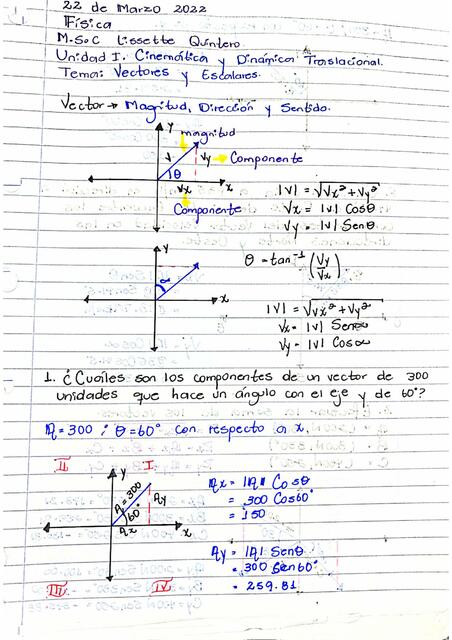 22 de Marzo 2022
Física
M.Sc Lissette Quintero.
Unidad I. Cinemática y Dinámica Translacional.
Tema: Vectores y Escalares.
Vector → Magnitud, Dirección y Sentido.
y
magnitud
V
Vy → Componente
θ
Vx
x
Componente
|V| = √Vx² + Vy²
Vx = |V| Cosθ
Vy = |V| Senθ
θ = tan⁻¹ (Vy/Vx)
y
α
x
|V| = √Vx² + Vy²
Vx = |V| Senα
Vy = |V| Cosα
1. ¿Cuáles son los componentes de un vector de 300
unidades que hace un ángulo con el eje y de 60°?
A = 300 ; θ = 60° con respecto a x.
II
I
y
A = 300
Ay
60°
Ax
x
III
IV
Ax = |A| Cosθ
= 300 Cos60°
= 150
Ay = |A| Senθ
= 300 Sen60°
= 259.81